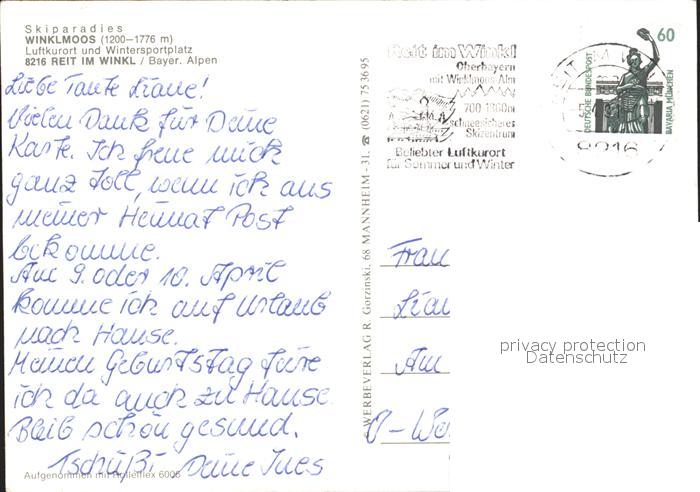 Skiparadies
WINKLMOOS (1200–1776 m)
Luftkurort und Wintersportplatz
8216 REIT IM WINKL / Bayer. Alpen
Liebe Tante Liane!
Vielen Dank für Deine
Karte. Ich freue mich
ganz toll, wenn ich aus
meiner Heimat Post
bekomme.
Am 9. oder 10. April
komme ich auf Urlaub
nach Hause.
Meinen Geburtstag feire
ich da auch zu Hause.
Bleib schön gesund.
Tschüßi Deine Ines
Aufgenommen mit Rolleiflex 6006
© WERBEVERLAG R. Gorzinski, 68 MANNHEIM-31, ☎ (0621) 75 36 95
Reit im Winkl
Oberbayern
mit Winklmoos-Alm
700-1860m
schneesicheres
Skizentrum
Beliebter Luftkurort
für Sommer und Winter
8216
60
DEUTSCHE BUNDESPOST
BAVARIA MÜNCHEN
Frau
Lian
Am
privacy protection
Datenschutz